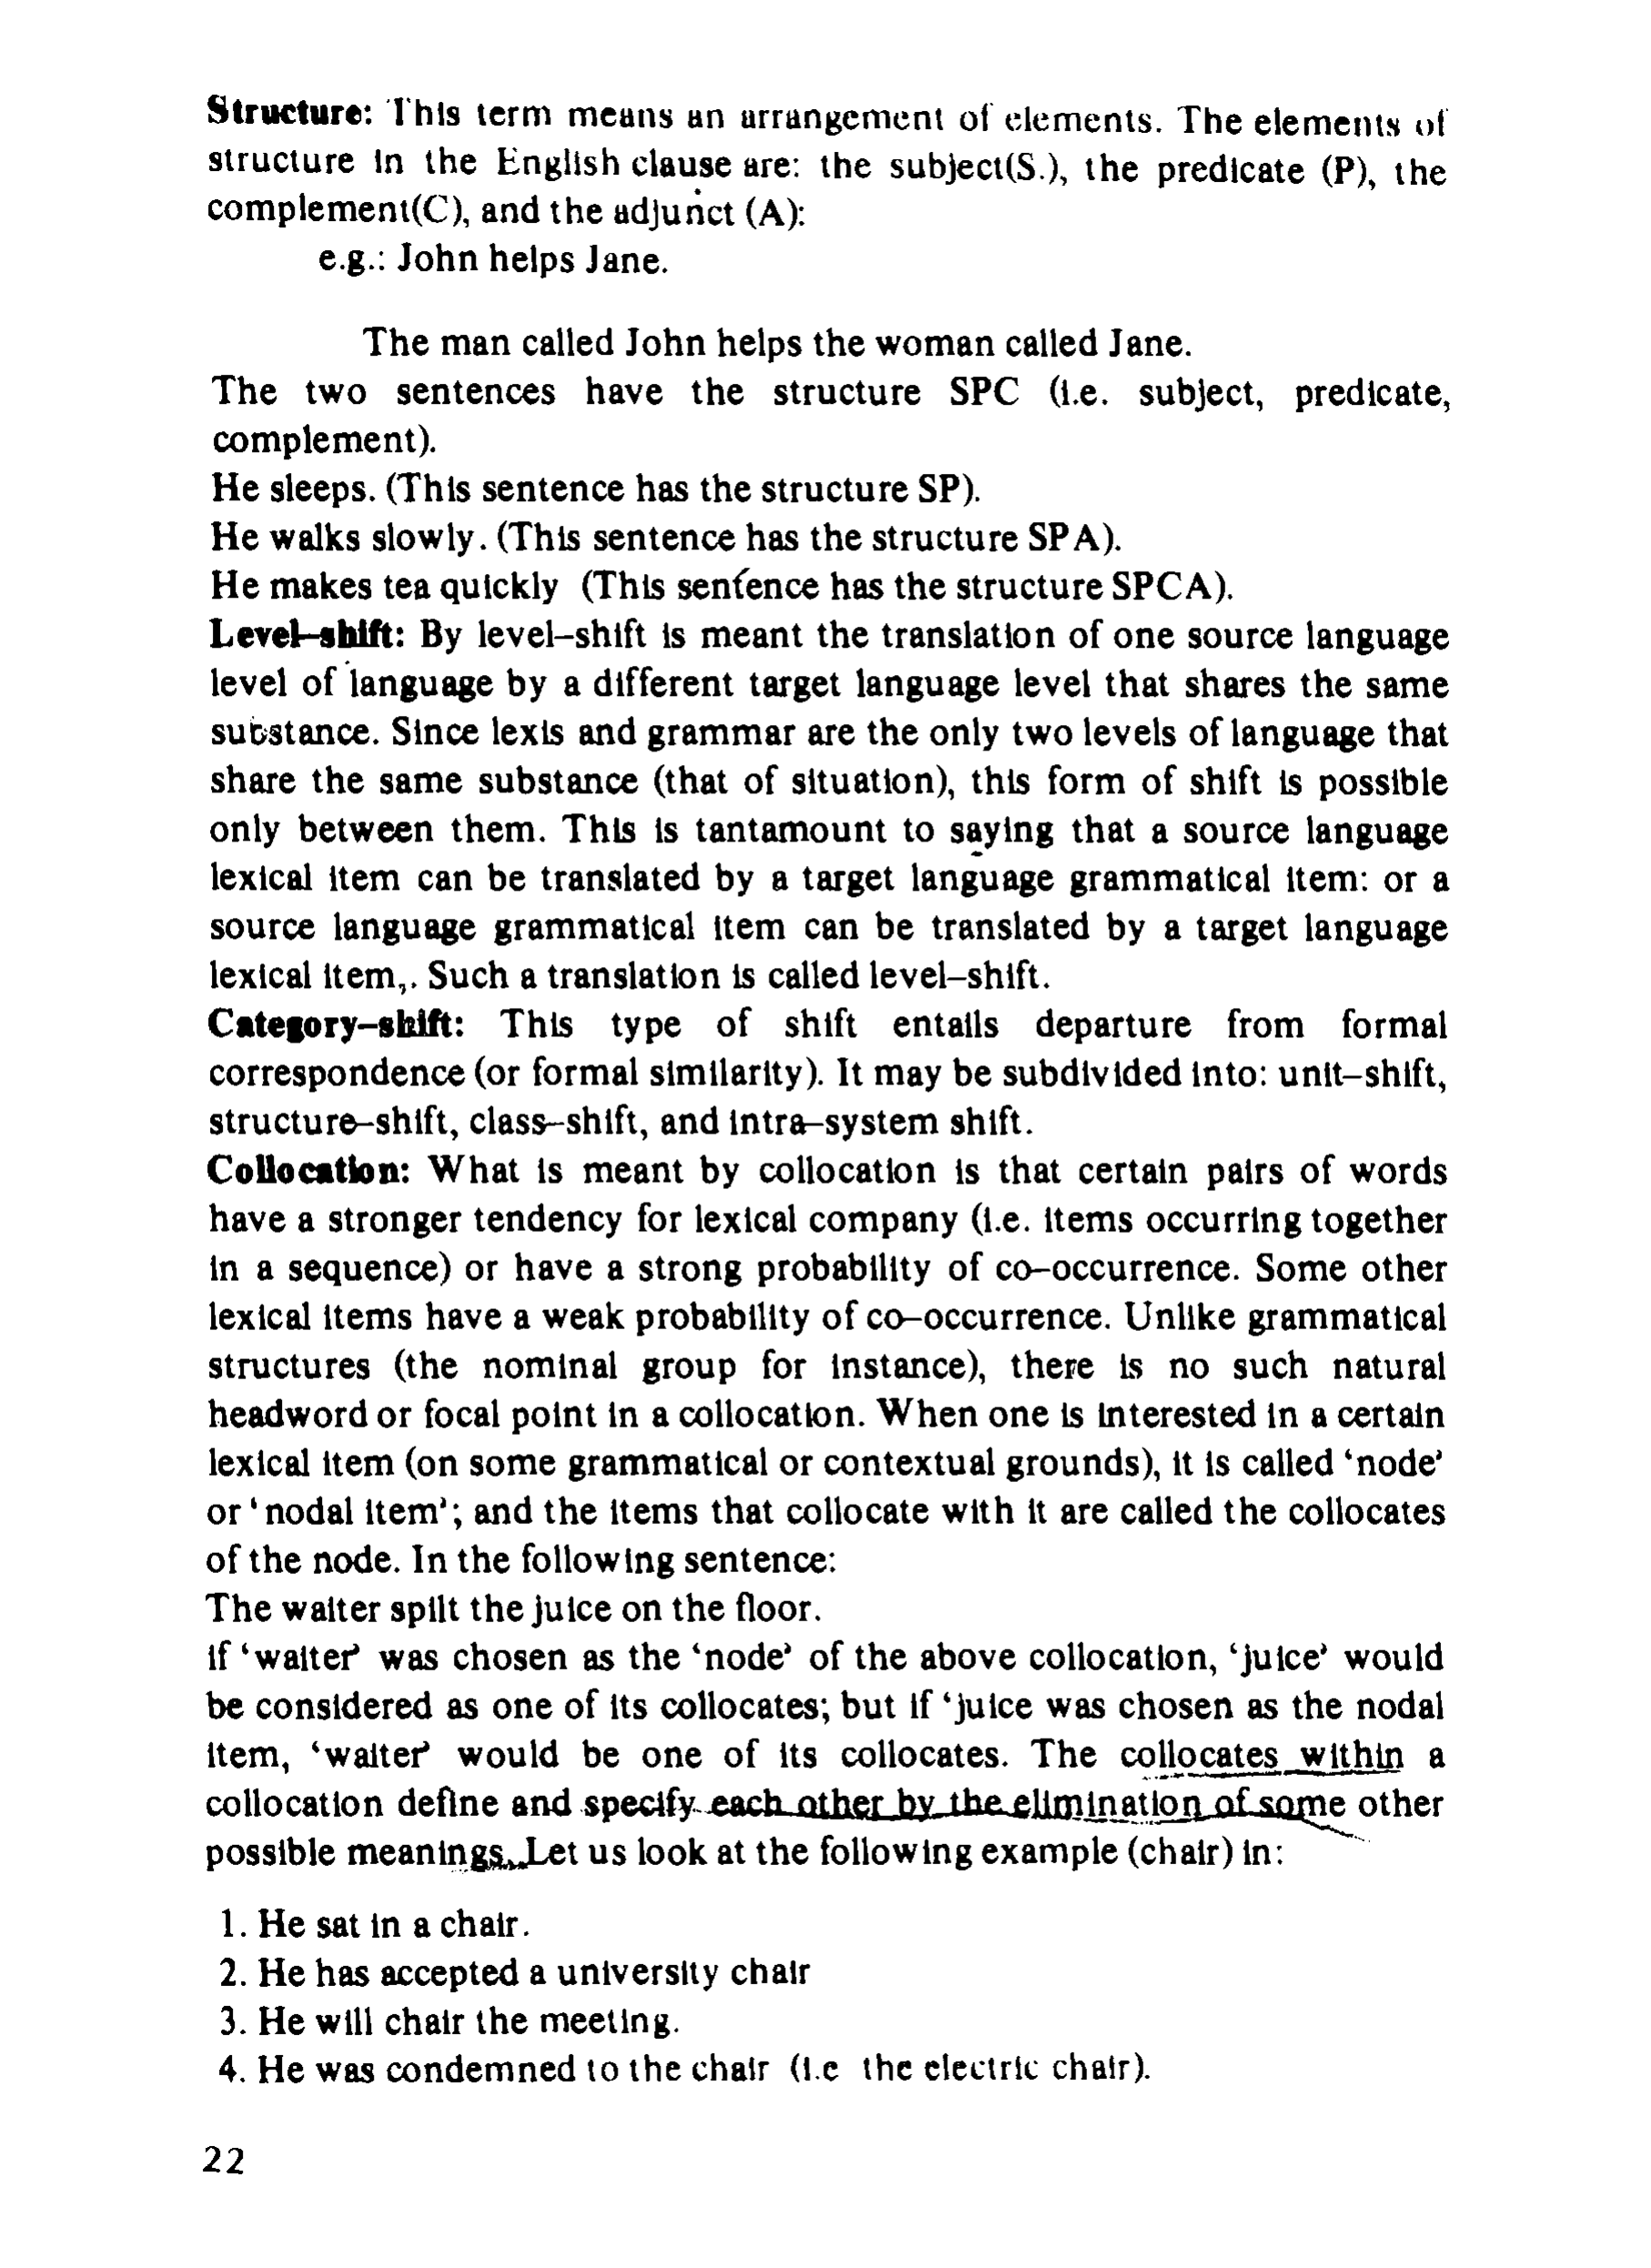 Structure: This term means an arrangement of elements. The elements of
structure in the English clause are: the subject(S.), the predicate (P), the
complement(C), and the adjunct (A):
e.g.: John helps Jane.
The man called John helps the woman called Jane.
The two sentences have the structure SPC (i.e. subject, predicate,
complement).
He sleeps. (This sentence has the structure SP).
He walks slowly. (This sentence has the structure SPA).
He makes tea quickly (This sentence has the structure SPCA).
Level–shift: By level–shift is meant the translation of one source language
level of language by a different target language level that shares the same
substance. Since lexis and grammar are the only two levels of language that
share the same substance (that of situation), this form of shift is possible
only between them. This is tantamount to saying that a source language
lexical item can be translated by a target language grammatical item: or a
source language grammatical item can be translated by a target language
lexical item,. Such a translation is called level–shift.
Category–shift: This type of shift entails departure from formal
correspondence (or formal similarity). It may be subdivided into: unit–shift,
structure–shift, class–shift, and intra–system shift.
Collocation: What is meant by collocation is that certain pairs of words
have a stronger tendency for lexical company (i.e. items occurring together
in a sequence) or have a strong probability of co–occurrence. Some other
lexical items have a weak probability of co–occurrence. Unlike grammatical
structures (the nominal group for instance), there is no such natural
headword or focal point in a collocation. When one is interested in a certain
lexical item (on some grammatical or contextual grounds), it is called ‘node’
or ‘nodal item’; and the items that collocate with it are called the collocates
of the node. In the following sentence:
The waiter spilt the juice on the floor.
if ‘waiter’ was chosen as the ‘node’ of the above collocation, ‘juice’ would
be considered as one of its collocates; but if ‘juice was chosen as the nodal
item, ‘waiter’ would be one of its collocates. The collocates within a
collocation define and specify each other by the elimination of some other
possible meanings. Let us look at the following example (chair) in:
1. He sat in a chair.
2. He has accepted a university chair
3. He will chair the meeting.
4. He was condemned to the chair (i.e the electric chair).
22